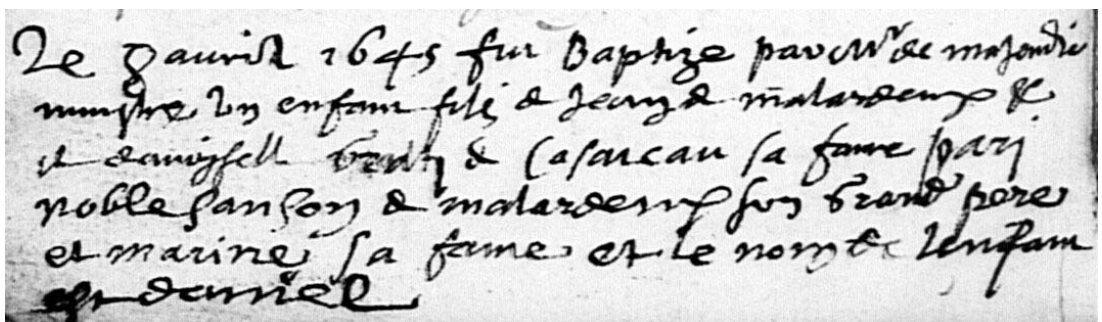 Le 9 auril 1645 fut Baptize par Mr de majendie
ministre un enfant filz de Jean de malardeux &
et damoyselle de Casaucau sa fame pari
noble sanson de malardeux son Grand pere
et marine sa fame et le nom de lenfant
est daniel